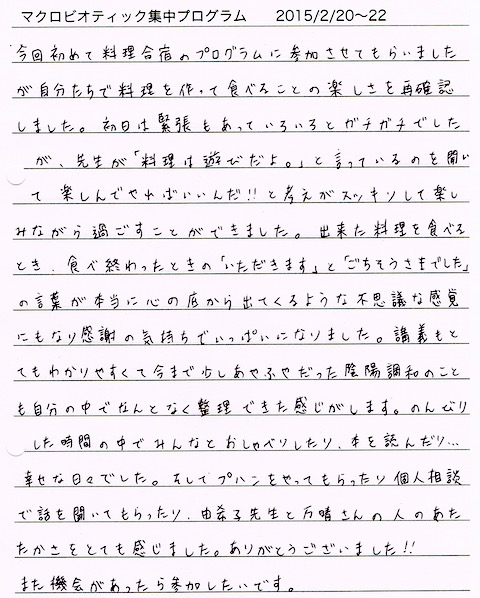 マクロビオティック集中プログラム　2015/2/20〜22
今回初めて料理合宿のプログラムに参加させてもらいました
が自分たちで料理を作って食べることの楽しさを再確認
しました。初日は緊張もあっていろいろとガチガチでした
が、先生が「料理は遊びだよ。」と言っているのを聞い
て楽しんでやればいいんだ!!と考えがスッキリして楽し
みながら過ごすことができました。出来た料理を食べる
とき、食べ終わったときの「いただきます」と「ごちそうさまでした」
の言葉が本当に心の底から出てくるような不思議な感覚
にもなり感謝の気持ちでいっぱいになりました。講義もと
てもわかりやすくて今まで少しあやふやだった陰陽調和のこと
も自分の中でなんとなく整理できた感じがします。のんびり
した時間の中でみんなとおしゃべりしたり、本を読んだり…
幸せな日々でした。そしてプハンをやってもらったり個人相談
で話を聞いてもらったり、由希子先生と万晴さんの人のあた
たかさをとても感じました。ありがとうございました!!
また機会があったら参加したいです。